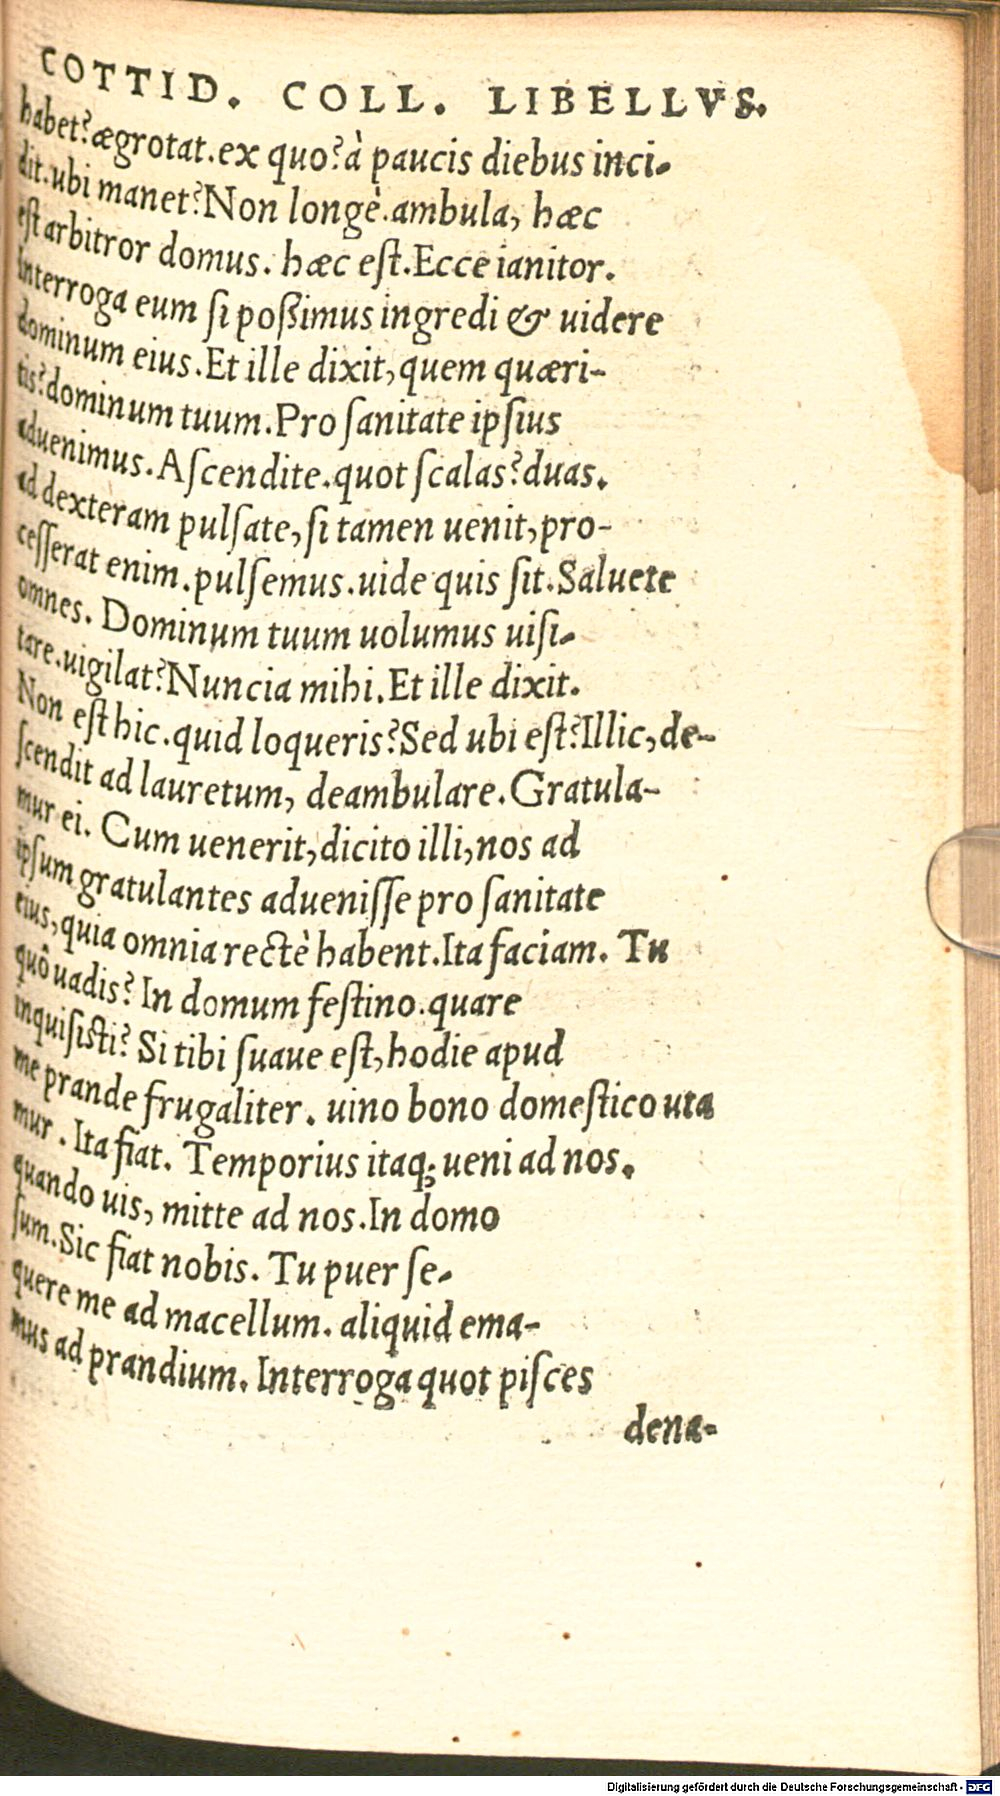 COTTID. COLL. LIBELLVS.
habet? ægrotat. ex quo? à paucis diebus inci-
dit. ubi manet? Non longè. ambula, hæc
eſt arbitror domus. hæc eſt. Ecce ianitor.
interroga eum ſi poßimus ingredi & uidere
dominum eius. Et ille dixit, quem quæri-
tis? dominum tuum. Pro ſanitate ipſius
aduenimus. Aſcendite. quot ſcalas? duas.
ad dexteram pulſate, ſi tamen uenit, pro-
ceſſerat enim. pulſemus. uide quis ſit. Saluete
omnes. Dominum tuum uolumus uiſi-
tare. uigilat? Nuncia mihi. Et ille dixit.
Non eſt hic. quid loqueris? Sed ubi eſt? Illic, de-
ſcendit ad lauretum, deambulare. Gratula-
mur ei. Cum uenerit, dicito illi, nos ad
ipſum gratulantes adueniſſe pro ſanitate
eius, quia omnia rectè habent. Ita faciam. Tu
quô uadis? In domum feſtino. quare
inquiſiſti? Si tibi ſuaue eſt, hodie apud
me prande frugaliter. uino bono domeſtico uta
mur. Ita fiat. Temporius itaq; ueni ad nos.
quando uis, mitte ad nos. In domo
ſum. Sic fiat nobis. Tu puer ſe-
quere me ad macellum. aliquid ema-
mus ad prandium. Interroga quot piſces
dena-
Digitalisierung gefördert durch die Deutsche Forschungsgemeinschaft - DFG